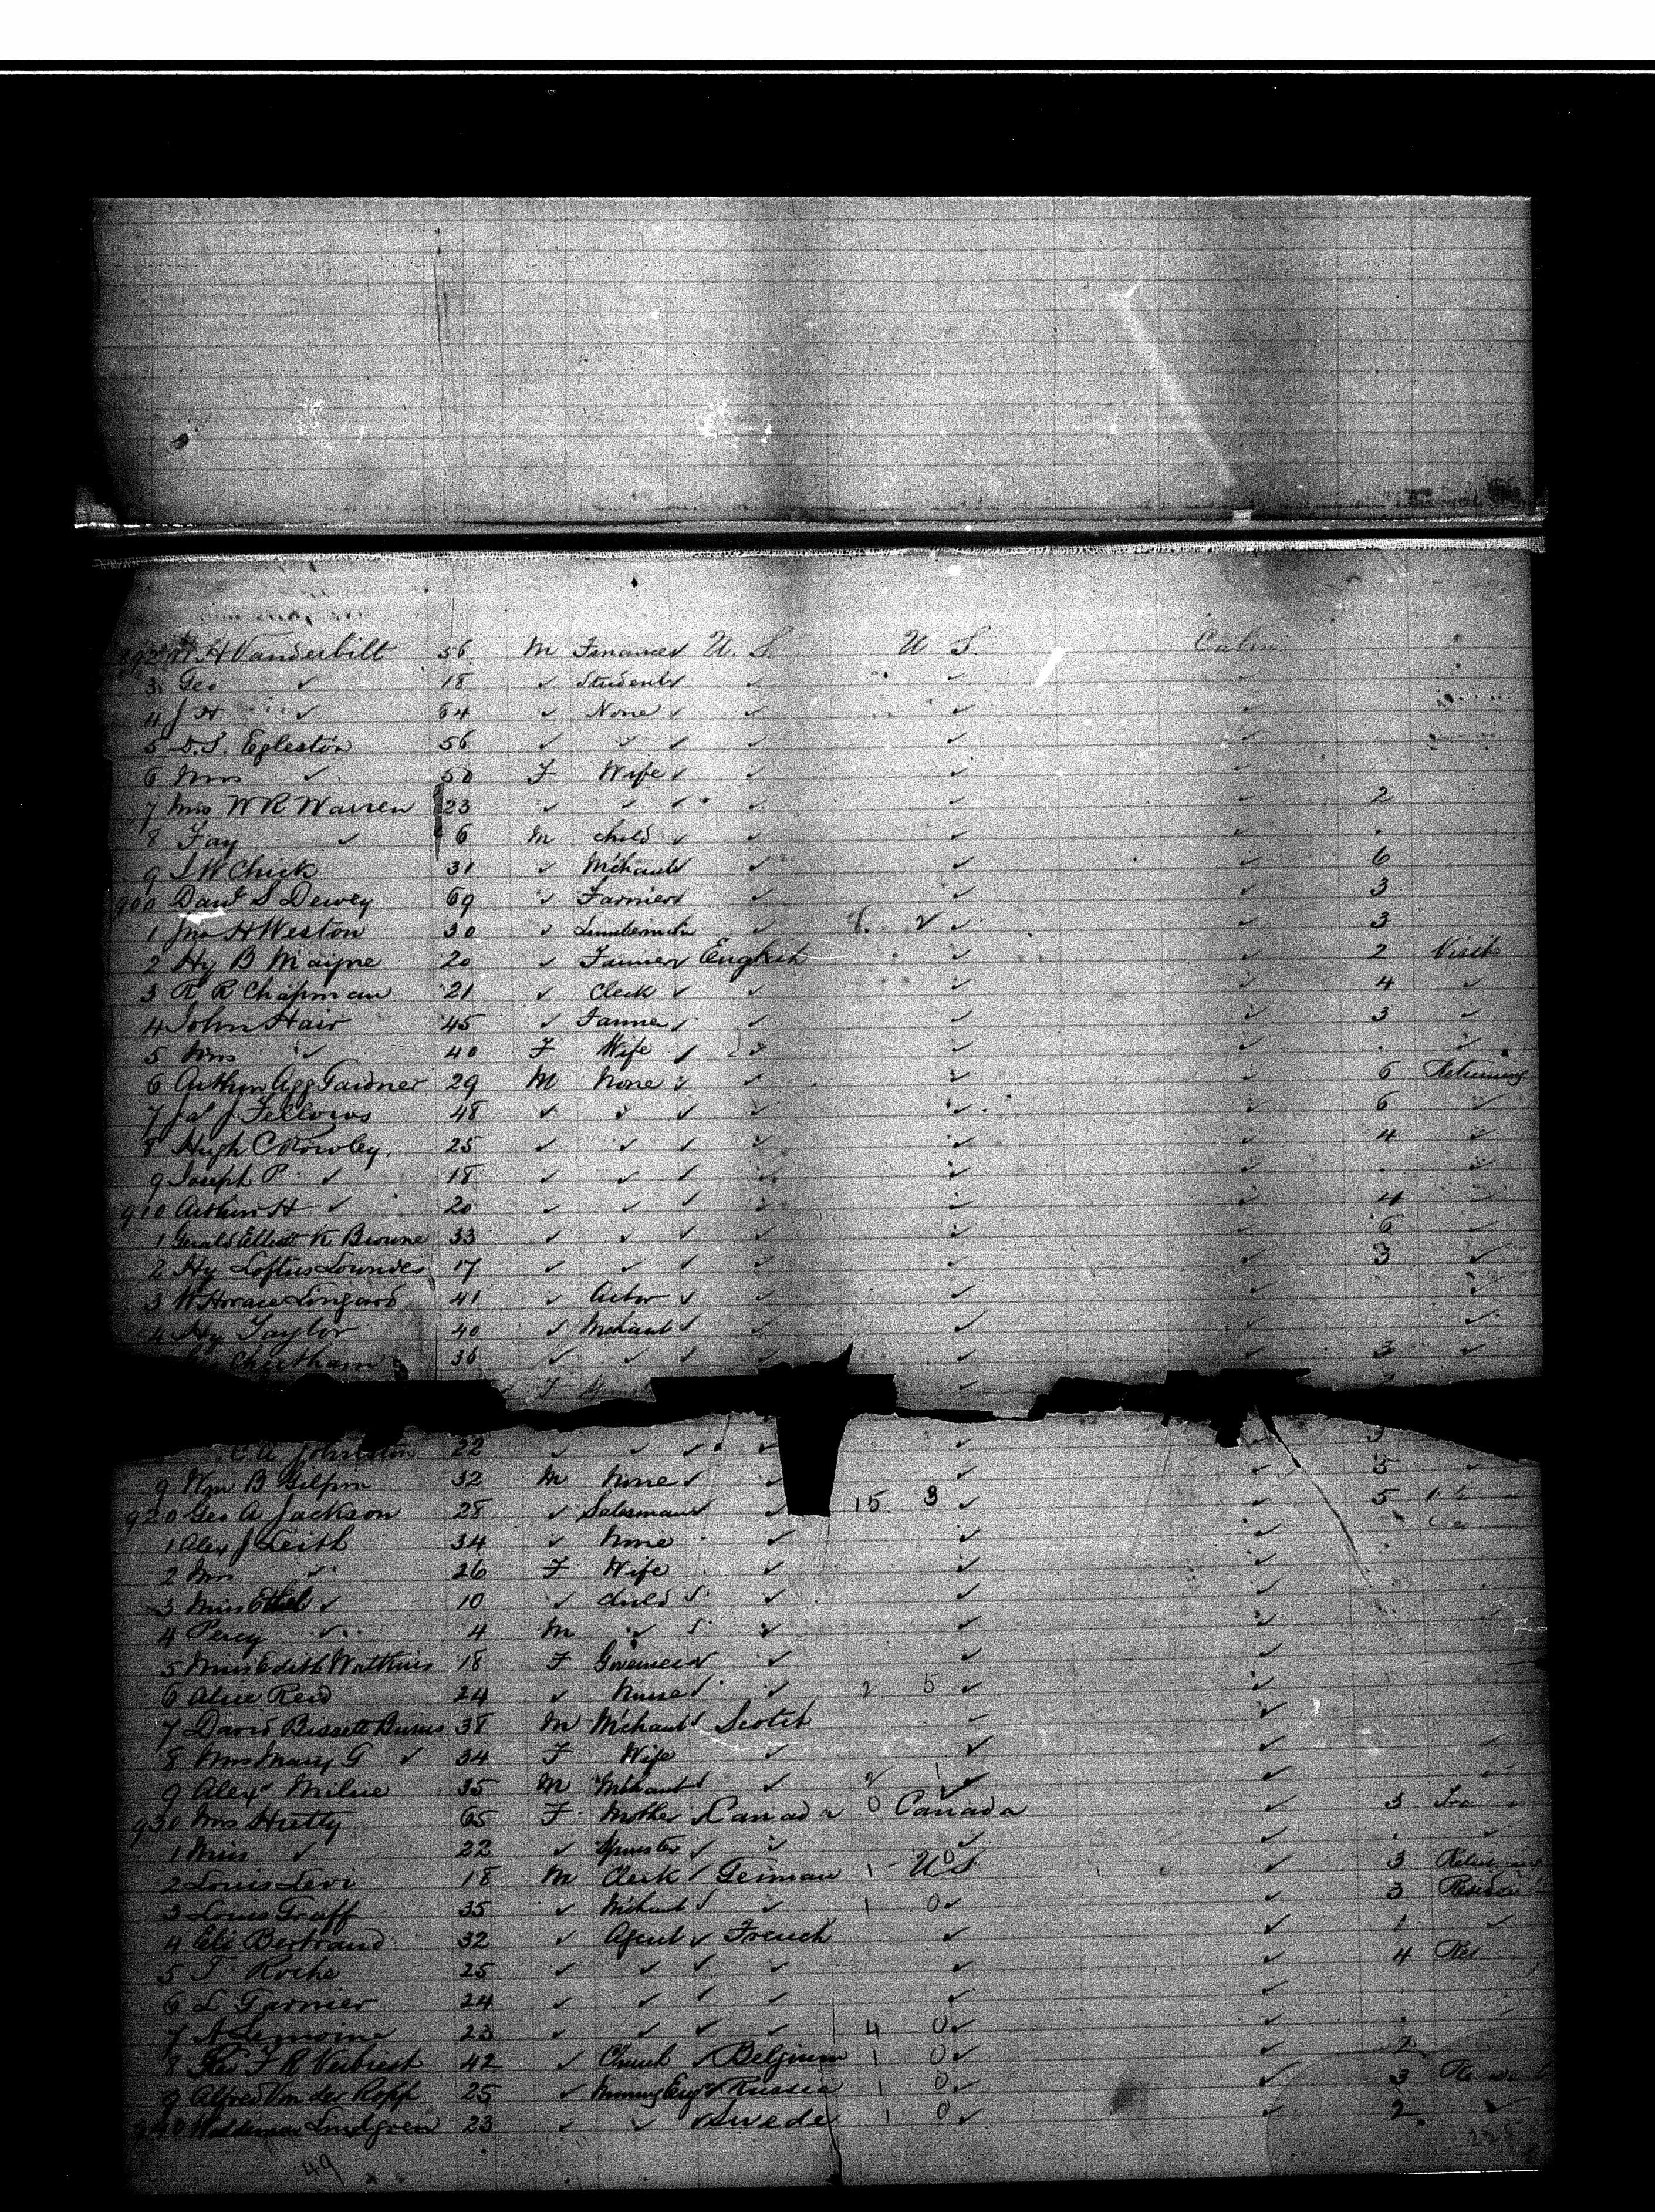 892 W H Vanderbilt 56 M Financer U. S. U S. Cabin
3 Geo ✓ 18 ✓ Student ✓ ✓ ✓ ✓
4 J H ✓ 64 ✓ None ✓ ✓ ✓ ✓
5 D. S. Egleston 56 ✓ ✓ ✓ ✓ ✓ ✓
6 Mrs ✓ 50 F Wife ✓ ✓ ✓ ✓
7 Mrs W R Warren 23 ✓ ✓ ✓ ✓ ✓ ✓ 2
8 Fay ✓ 6 M Child ✓ ✓ ✓ ✓
9 I W Chick 31 ✓ Mchant ✓ ✓ ✓ ✓ 6
900 Danl S Dewey 69 ✓ Farmer ✓ ✓ ✓ ✓ 3
1 Jno H Weston 30 ✓ Lumberman ✓ ✓ ✓ 3
2 Hy B Mayne 20 ✓ Farmer English ✓ ✓ 2 Visit
3 R R Chapman 21 ✓ Clerk ✓ ✓ ✓ ✓ 4 ✓
4 John Hair 45 ✓ Farmer ✓ ✓ ✓ ✓ 3 ✓
5 Mrs ✓ 40 F Wife ✓ ✓ ✓ ✓ ✓
6 Arthur Agg Gardner 29 M None ✓ ✓ ✓ ✓ 6 Returning
7 Jas J Fellows 48 ✓ ✓ ✓ ✓ ✓ ✓ 6 ✓
8 Hugh C Rowley 25 ✓ ✓ ✓ ✓ ✓ ✓ 4 ✓
9 Joseph P ✓ 18 ✓ ✓ ✓ ✓ ✓ ✓ ✓
910 Arthur H ✓ 20 ✓ ✓ ✓ ✓ ✓ ✓ 4 ✓
1 Gerald Elliott K Browne 33 ✓ ✓ ✓ ✓ ✓ ✓ 6 ✓
2 Hy Loftus Lowndes 17 ✓ ✓ ✓ ✓ ✓ ✓ 3 ✓
3 W Horace Lingard 41 ✓ Actor ✓ ✓ ✓ ✓ ✓
4 Hy Taylor 40 ✓ Mchant ✓ ✓ ✓ ✓ ✓
Cheetham 36 ✓ ✓ ✓ ✓ ✓ ✓ 3 ✓
F
C A Johnston 22 ✓ ✓ ✓ ✓ ✓ ✓ 3
9 Wm B Gilpin 32 M None ✓ ✓ ✓ ✓ 5 ✓
920 Geo A Jackson 28 ✓ Salesman ✓ ✓ 15 3 ✓ ✓ 5
1 Alex J Leith 34 ✓ None ✓ ✓ ✓
2 Mrs ✓ 26 F Wife ✓ ✓ ✓
3 Miss Ethel ✓ 10 ✓ Child ✓ ✓ ✓ ✓
4 Percy ✓ 4 M ✓ ✓ ✓ ✓ ✓
5 Miss Edith Watkins 18 F Governess ✓ ✓ ✓ ✓
6 Alice Reid 24 ✓ Nurse ✓ ✓ 2 5 ✓ ✓
7 David Bissett Burns 38 M Mchant ✓ Scotch ✓ ✓
8 Mrs Mary G ✓ 34 F Wife ✓ ✓ ✓
9 Alexr Milne 35 M Mchant ✓ ✓ 2 1 ✓ ✓
930 Mrs Hutty 65 F Mother Canada 0 Canada ✓ 3
1 Miss ✓ 22 ✓ Spinster ✓ ✓ ✓ ✓ ✓
2 Louis Levi 18 M Clerk ✓ German 1 0 U S ✓ 3 Returning
3 Louis Graff 35 ✓ Mchant ✓ ✓ 1 0 ✓ ✓ 3
4 Eli Bertrand 32 ✓ Agent ✓ French ✓ ✓ 1 ✓
5 T Roche 25 ✓ ✓ ✓ ✓ ✓ ✓ 4 Ret
6 L Garnier 24 ✓ ✓ ✓ ✓ ✓ ✓
7 A Lemoine 23 ✓ ✓ ✓ ✓ 4 0 ✓ ✓
8 Rev F R Verbiest 42 ✓ Church ✓ Belgium 1 0 ✓ ✓ 2
9 Alfred Von der Ropp 25 ✓ Mining Engr Russia 1 0 ✓ ✓ 3
940 Waldemar Lindgren 23 ✓ ✓ ✓ Swede 1 0 ✓ ✓ 2 ✓
49